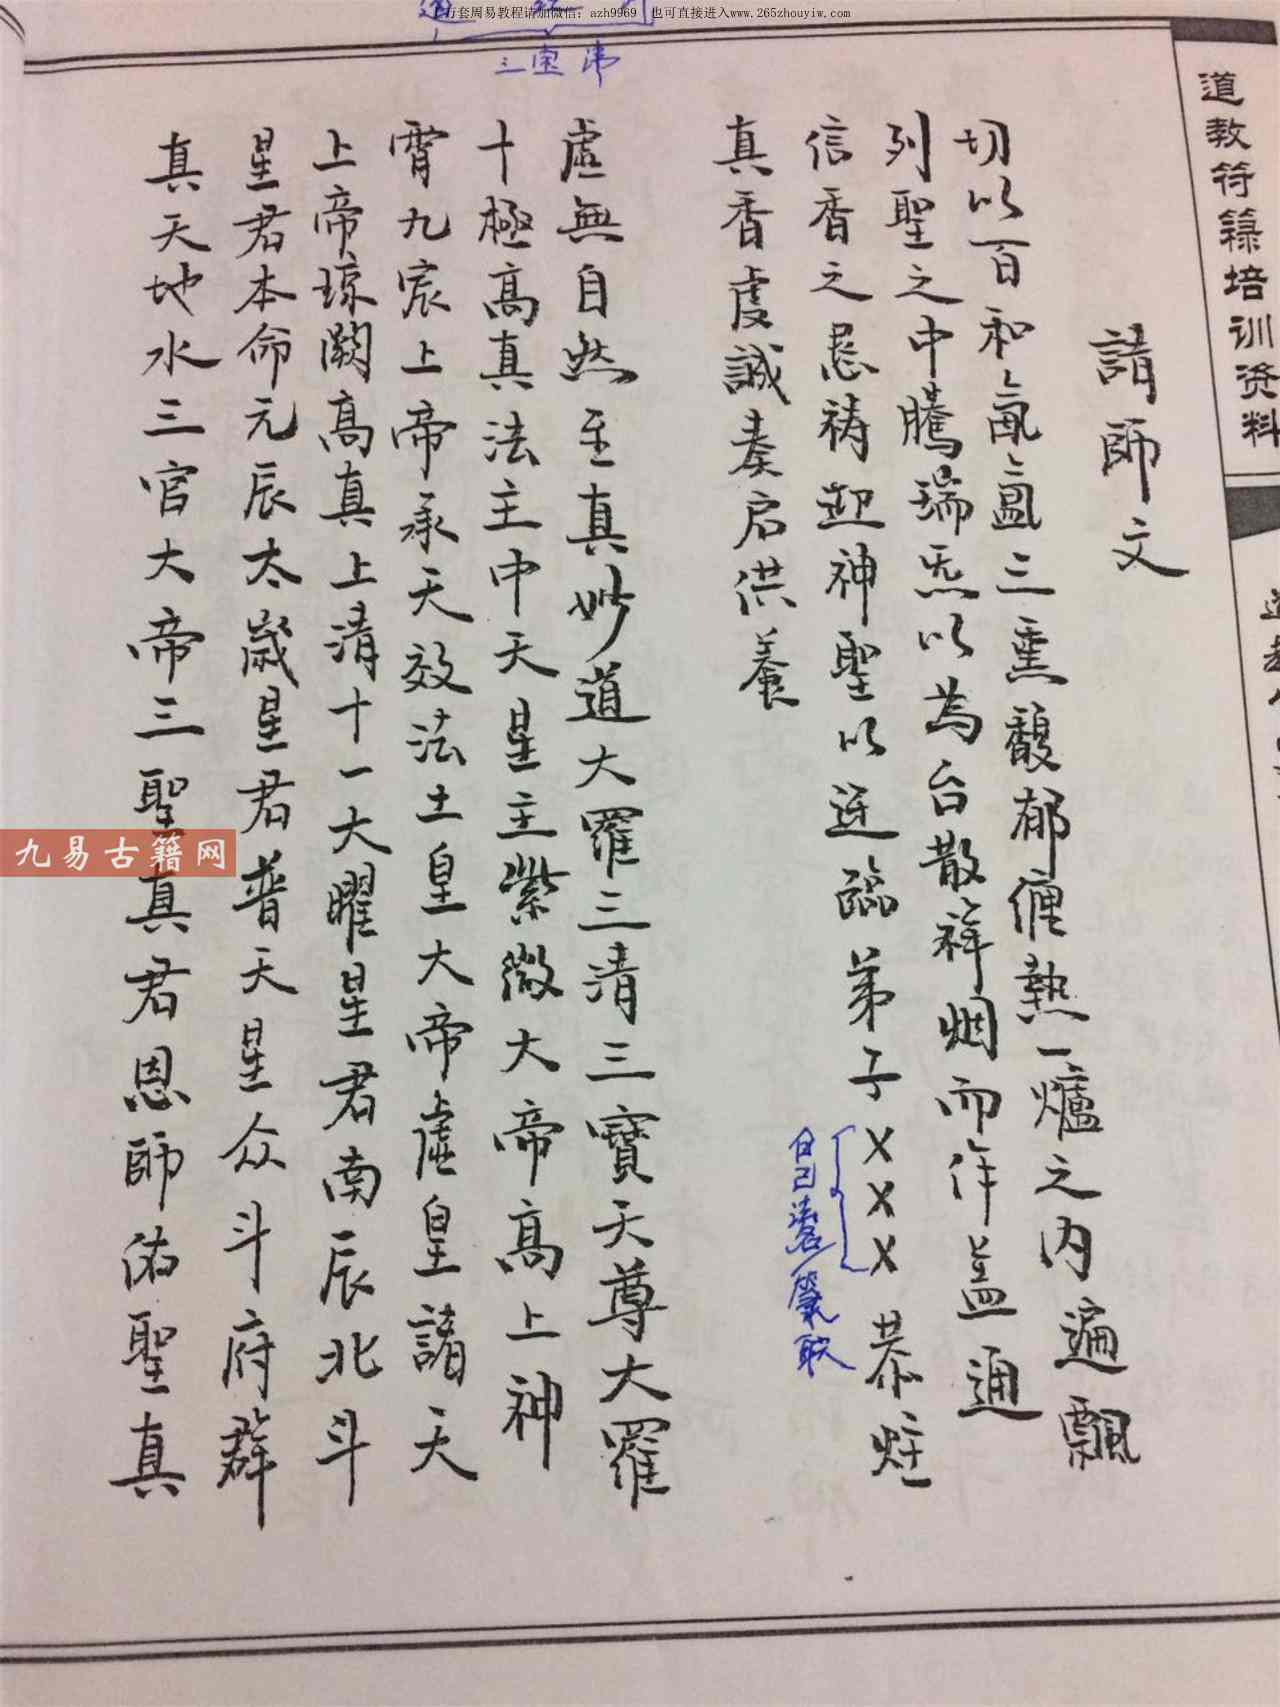 行套周易教程请加微信：azh9969 也可直接进入www.265zhouyiw.com
三宝
道教符籙培训资料
請師文
切以百和氤氳三熏馥郁纏熱一爐之内遍飄
列聖之中騰瑞炁以為台散祥烟而作盖通
信香之恳祷迎神聖以迓臨弟子XXX恭炷
自己
真香虔誠奏启供養
虛無自然至真妙道大羅三清三寶天尊大羅
十極高真法主中天星主紫微大帝高上神
霄九宸上帝承天效法土皇大帝虛皇諸天
上帝琼闕高真上清十一大曜星君南辰北斗
星君本命元辰太歲星君普天星众斗府群
真天地水三官大帝三聖真君恩師佑聖真
九易古籍网